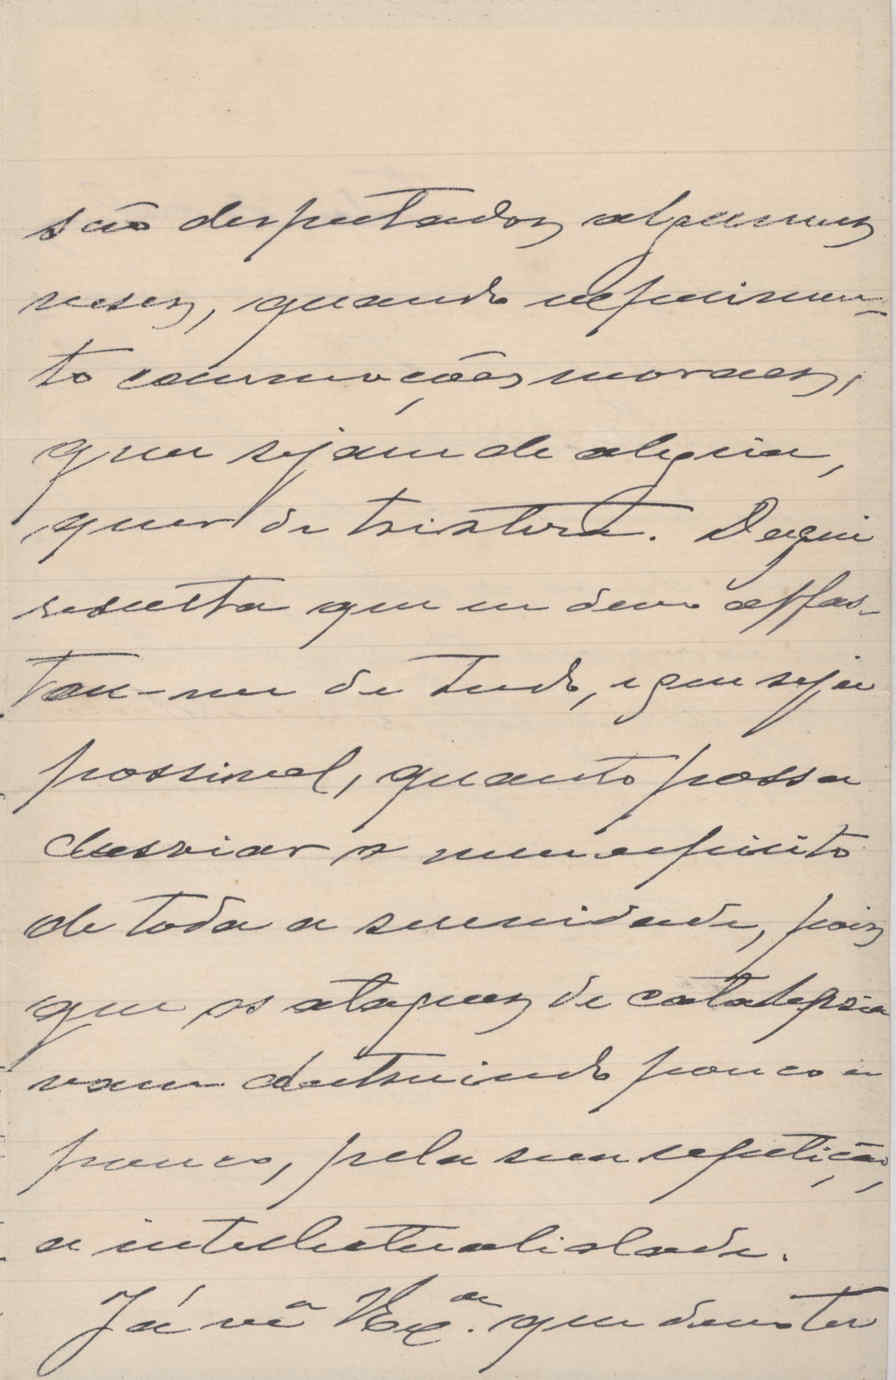 são despertados algumas
vezes, quando experimen-
to commoções moraes,
quer sejam de alegria,
quer de tristeza. D'aqui
resulta que eu devo affas-
tar-me de tudo, e que seja
possivel, quanto possa
desviar o meu espirito
de toda a serenidade, pois
que os ataques de catalepsia
vam destruindo pouco a
pouco, pela sua repetição,
a intellectualidade.
Já vê V Exª. que devo ter